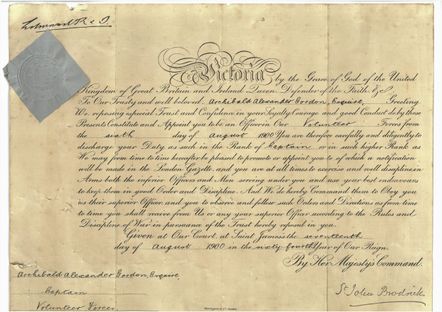 Edward R & I
Victoria by the Grace of God of the United
Kingdom of Great Britain and Ireland Queen, Defender of the Faith, &c
To Our Trusty and well beloved Archibald Alexander Gordon, Esquire, Greeting
We reposing especial Trust and Confidence in your Loyalty Courage and good Conduct do by these
Presents Constitute and Appoint you to be an Officer in Our Volunteer Force from
the sixth day of August 1900 You are therefore carefully and diligently to
discharge your Duty as such in the Rank of Captain or in such higher Rank as
We may from time to time hereafter be pleased to promote or appoint you to of which a notification
will be made in the London Gazette, and you are at all times to exercise and well discipline in
Arms both the inferior Officers and Men serving under you and use your best endeavours
to keep them in good Order and Discipline. And We do hereby Command them to Obey you
as their superior Officer and you to observe and follow such Orders and Directions as from time
to time you shall receive from Us or any your superior Officer according to the Rules and
Discipline of War in pursuance of the Trust hereby reposed in you.
Given at Our Court, at Saint James's the seventeenth
day of August 1900 in the sixty fourth Year of Our Reign
By Her Majesty's Command.
Archibald Alexander Gordon, Esquire
Captain
Volunteer Force
St John Brodrick